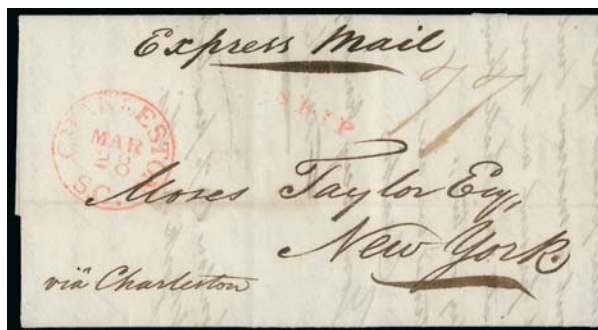 Express Mail
SHIP
77
CHARLESTON
MAR
28
S.C.
Moses Taylor Esq,
New York.
via Charleston